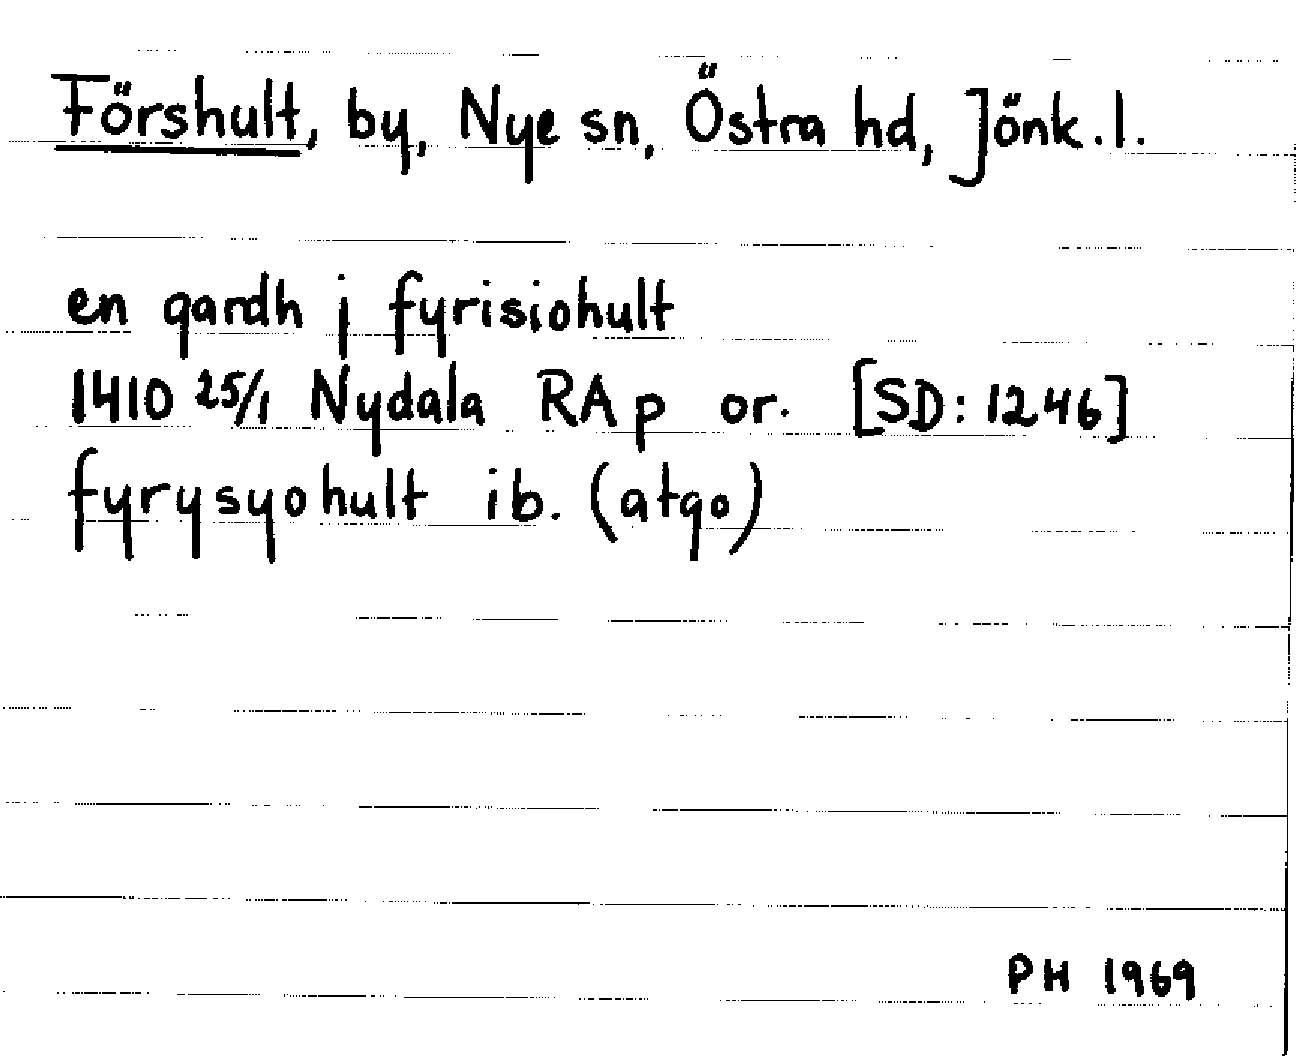 Förshult, by, Nye sn, Östra hd, Jönk.l.
en gardh j fyrisiohult
1410 25/1 Nydala RAp or. [SD: 1246]
fyrysyohult ib. (atgo)
PH 1969